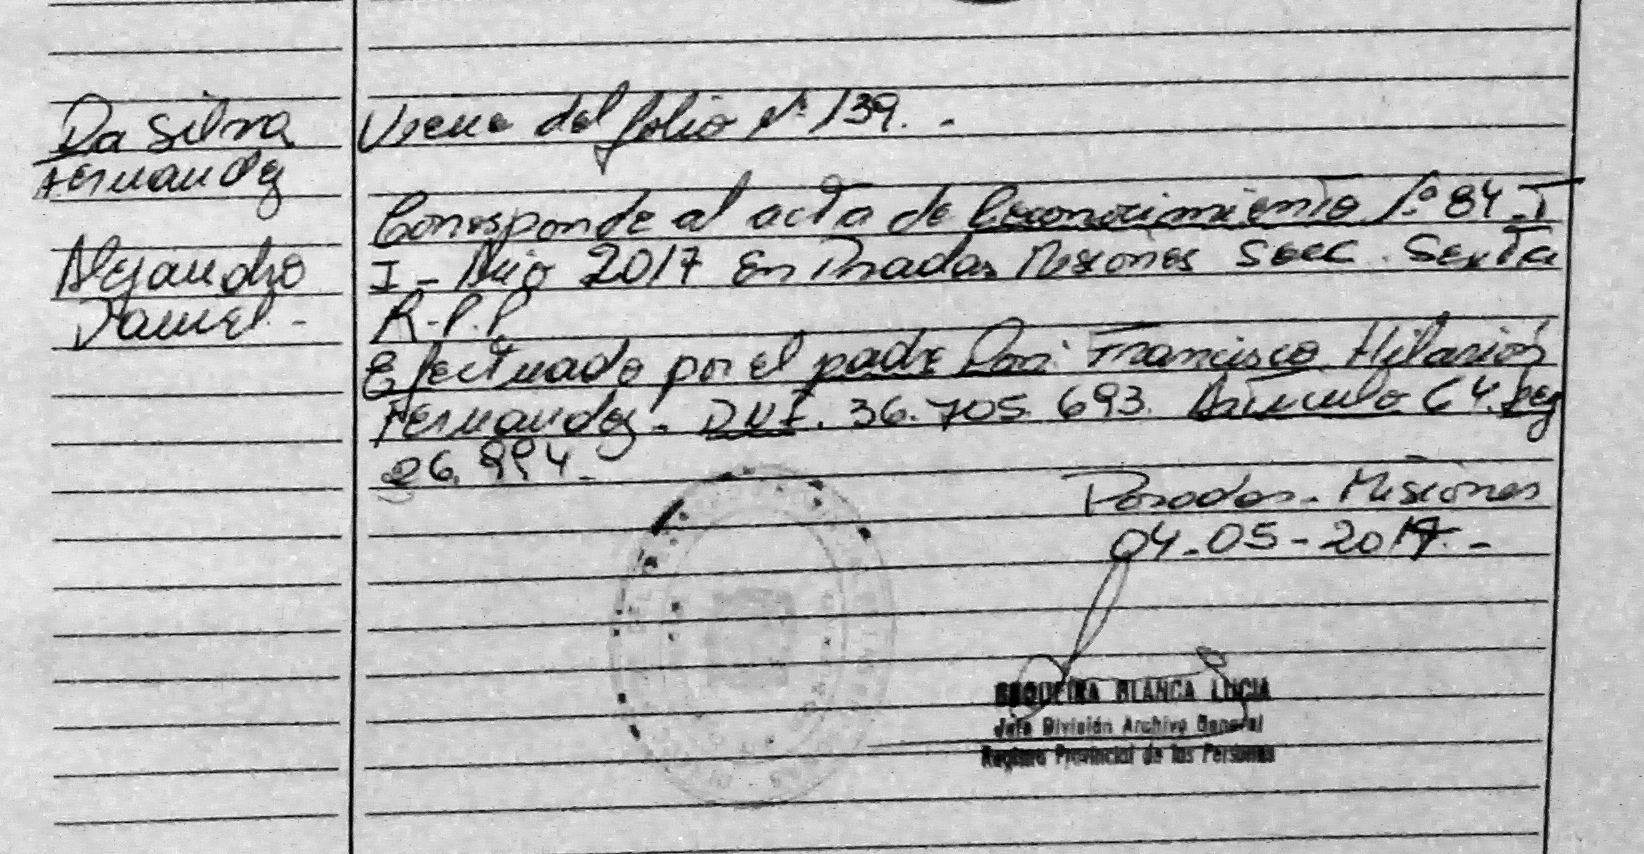 Da Silva
Fernandez
Alejandro
Daniel.-
Viene del folio Nº 139. -
Corresponde al acta de Reconocimiento Nº 84 T
I - Año 2017 En Posadas Misiones Secc. Sexta
R.P.P
Efectuado por el padre Don: Francisco Hilarión
Fernandez. D.N.I. 36.705.693. Artículo 64. Ley
26.994.-
Posadas - Misiones
04-05-2017.-
SEQUEIRA BLANCA LUCIA
Jefe División Archivo General
Registro Provincial de las Personas